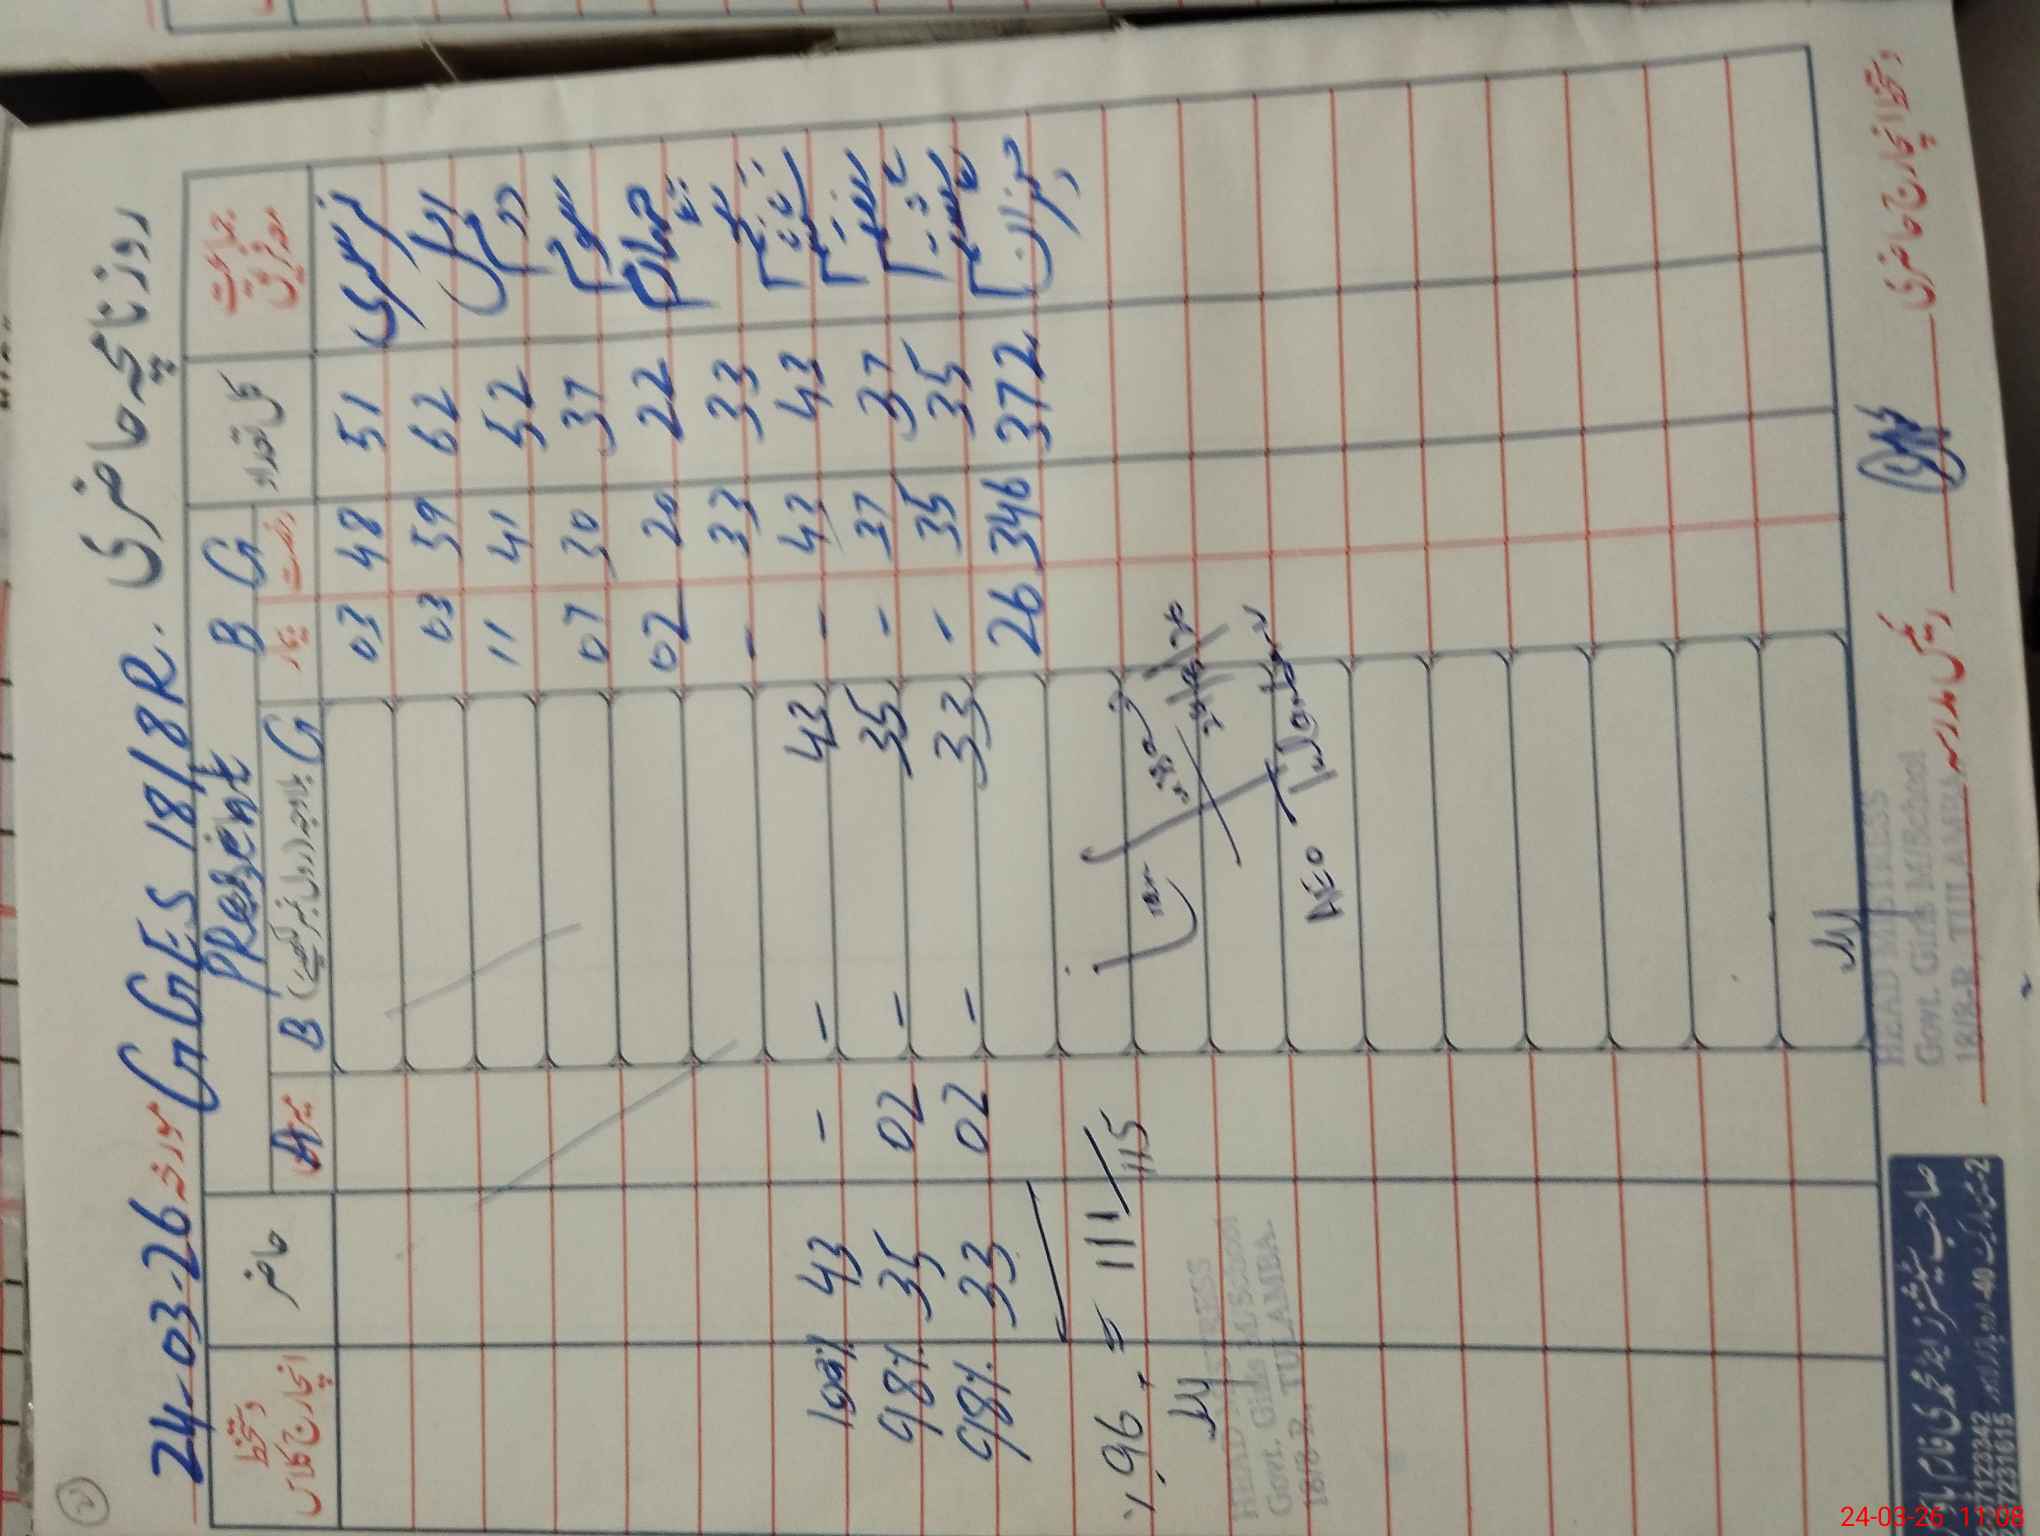 روزنامچہ حاضری
GGES 18/8R.
مورخہ 24-03-26
جماعت معہ فریق کل تعداد B G Present حاضر دستخط انچارج کلاس
بیمار رخصت B بلاوجہ (رول نمبر لکھیے) G
نرسری 51 48 03
اول 62 59 03
دوم 52 41 11
سوم 37 30 07
چہارم 22 20 02
پنجم 33 33 -
ششم 43 43 - 43 - - 43 100%
ہفتم 37 37 - 35 - 02 35 98%
ہشتم 35 35 - 33 - 02 33 98%
میزان 372 346 26
% 96. = 111/115
AEO Tulamba
HEAD MISTRESS
Govt. Girls M/School
18/8-R, TULAMBA.
دستخط انچارج حاضری
رئیس مدرسہ
HEAD MISTRESS
Govt. Girls M/School
18/8-R, TULAMBA.
7123342
7231615
24-03-26 11:08